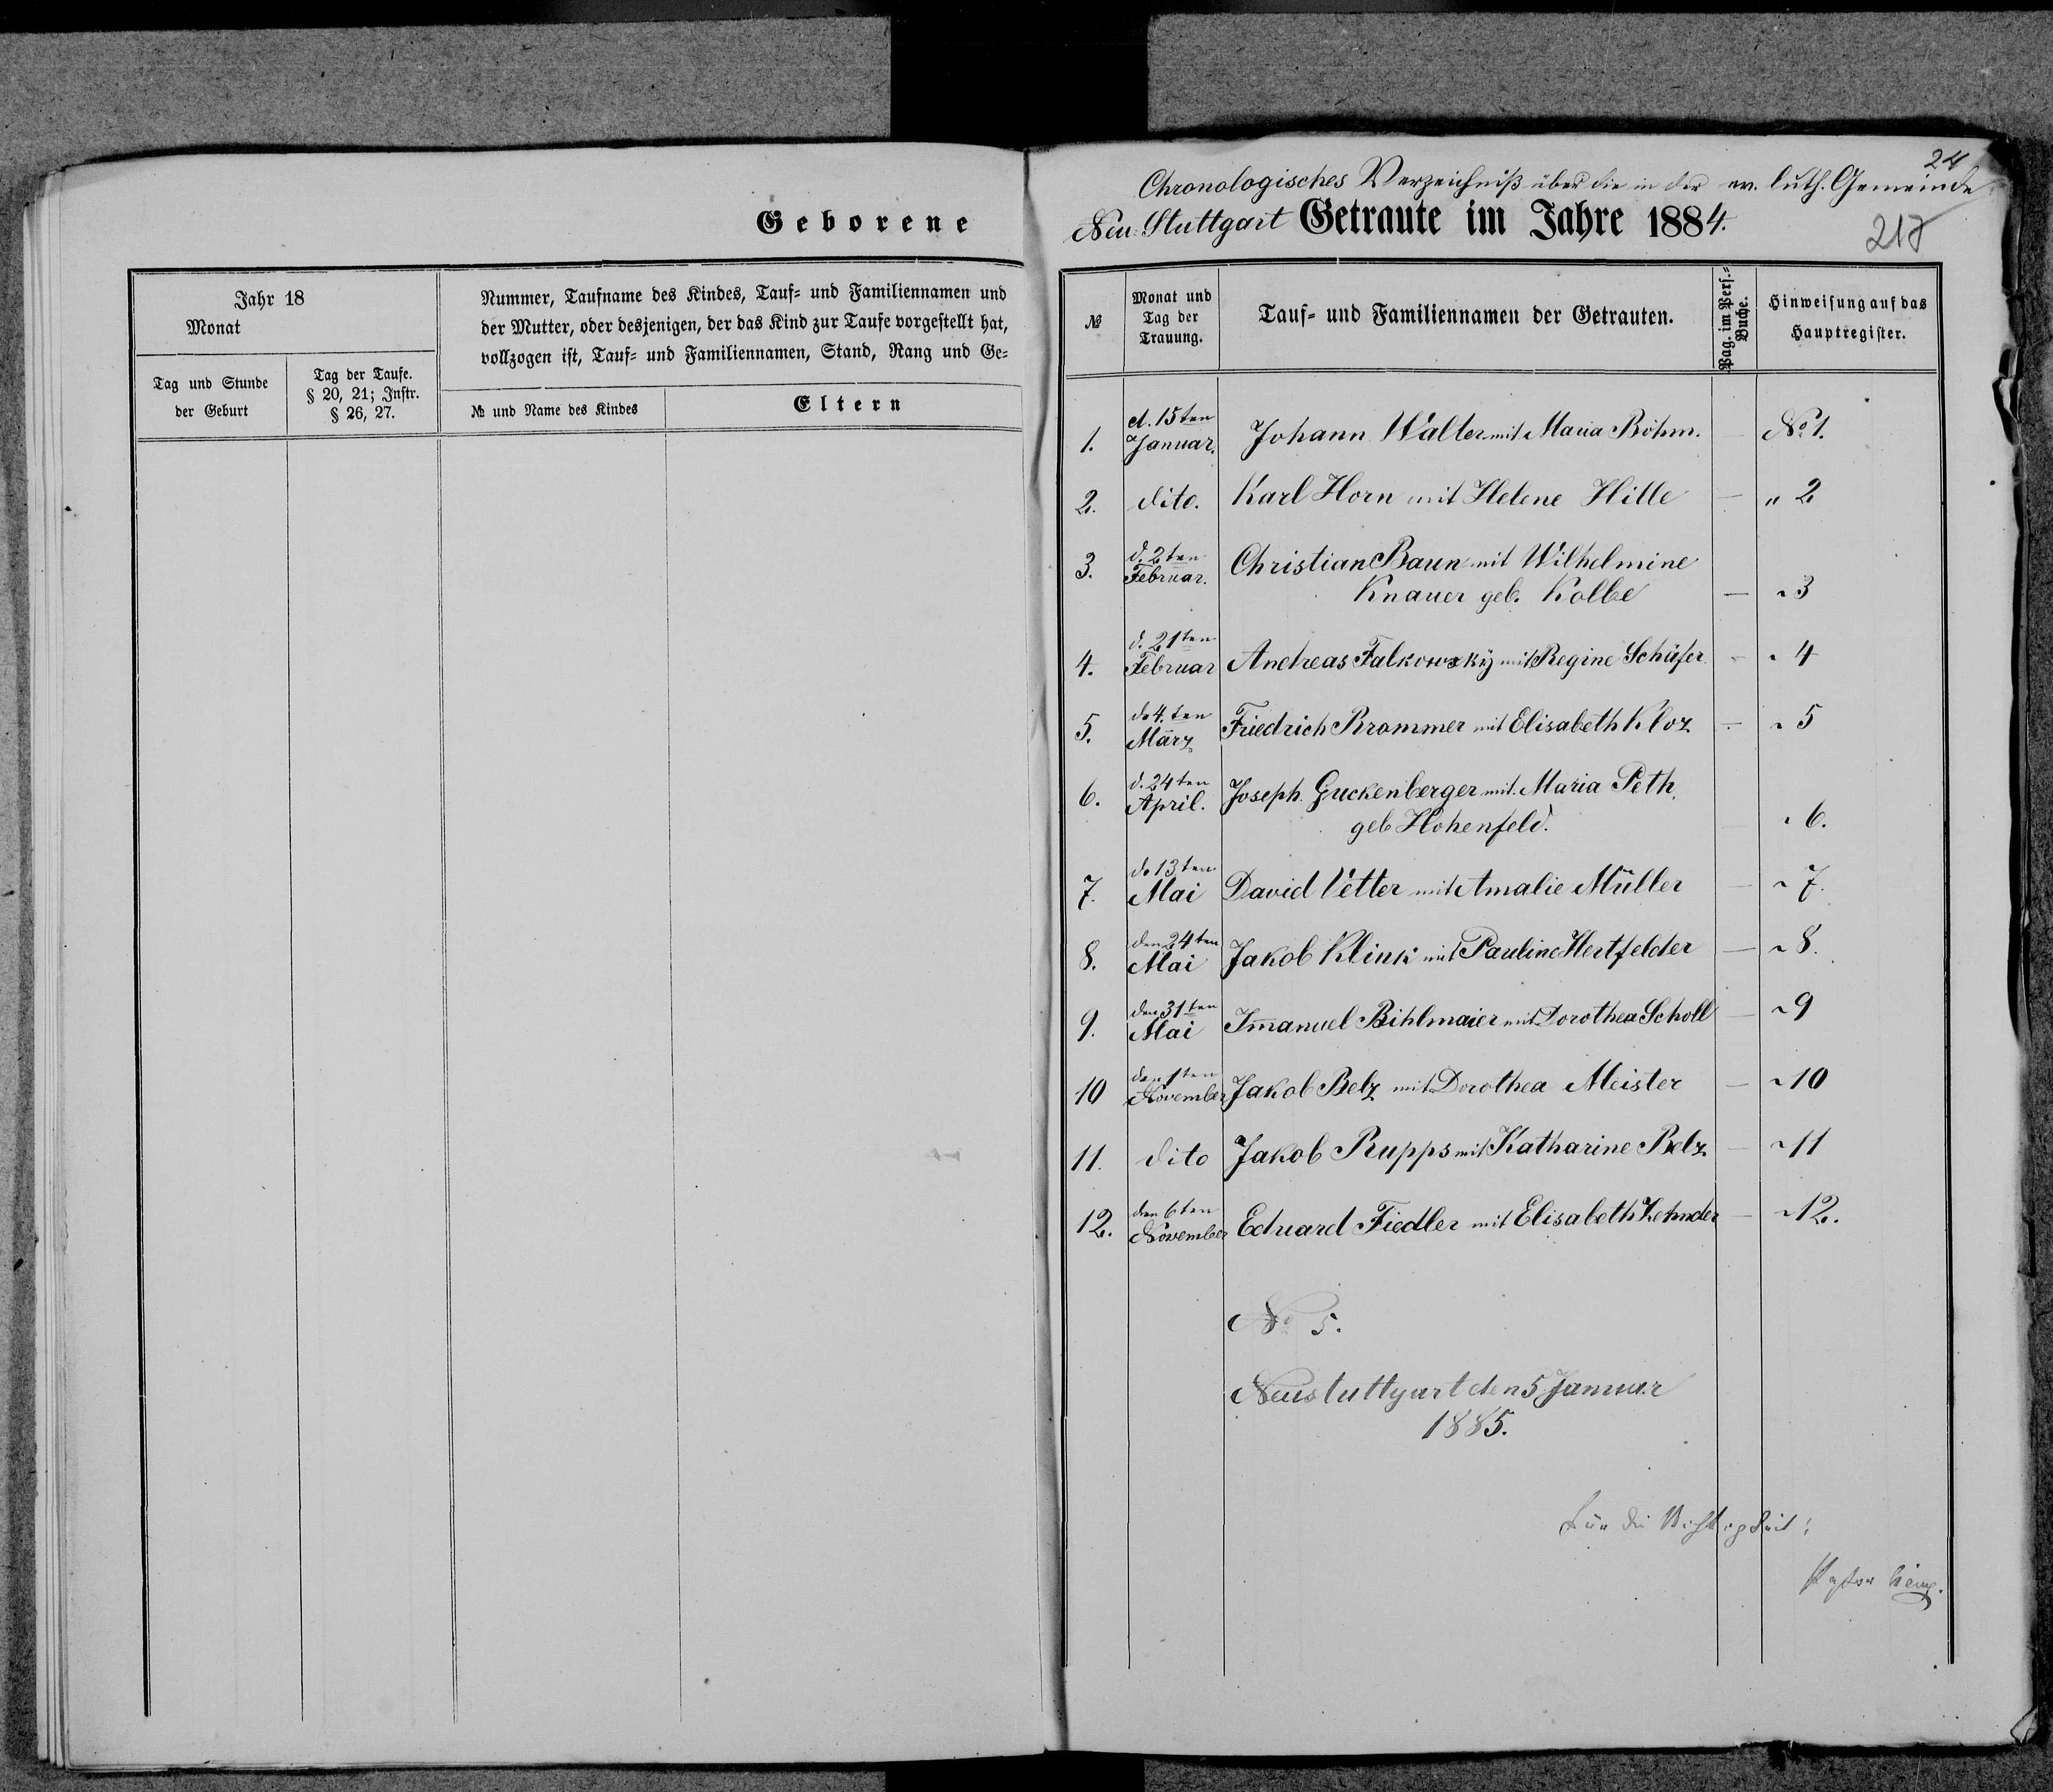 Geborene
Jahr 18
Monat
Nummer, Taufname des Kindes, Tauf- und Familiennamen und
der Mutter, oder desjenigen, der das Kind zur Taufe vorgestellt hat,
vollzogen ist, Tauf- und Familiennamen, Stand, Rang und Ge-
Tag und Stunde
der Geburt
Tag der Taufe.
§ 20, 21; Instr.
§ 26, 27.
№ und Name des Kindes
Eltern
24
Chronologisches Verzeichniß über die in der ev. luth. Gemeinde
Neu-Stuttgart Getraute im Jahre 1884.
217
№
Monat und
Tag der
Trauung.
Tauf- und Familiennamen der Getrauten.
Pag. im Pers.-
Buche.
Hinweisung auf das
Hauptregister.
1. d. 15ten Januar. Johann Walter mit Maria Böhm. — No 1.
2. dito. Karl Horn mit Helene Hille — „ 2
3. d. 2ten Februar. Christian Baun mit Wilhelmine
Knauer geb. Kolbe — „ 3
4. d. 21ten Februar Andreas Falkowsky mit Regine Schäfer — „ 4
5. d. 4.ten März Friedrich Brommer mit Elisabeth Kloz — „ 5
6. d. 24ten April. Joseph Guckenberger mit Maria Peth,
geb Hohenfeld. — „ 6.
7. d. 13ten Mai David Vetter mit Amalie Müller — „ 7.
8. den 24ten Mai Jakob Klink mit Pauline Hertfelder — „ 8.
9. den 31ten Mai Im̅anuel Bihlmaier mit Dorothea Scholl — „ 9
10 den 1ten November Jakob Belz mit Dorothea Meister — „ 10
11. dito Jakob Rupps mit Katharine Belz — „ 11
12. den 6ten November Eduard Fiedler mit Elisabeth Zehnder — „ 12.
No 5.
Neustuttgart den 5 Januar
1885.
Für die Richtigkeit:
Pastor